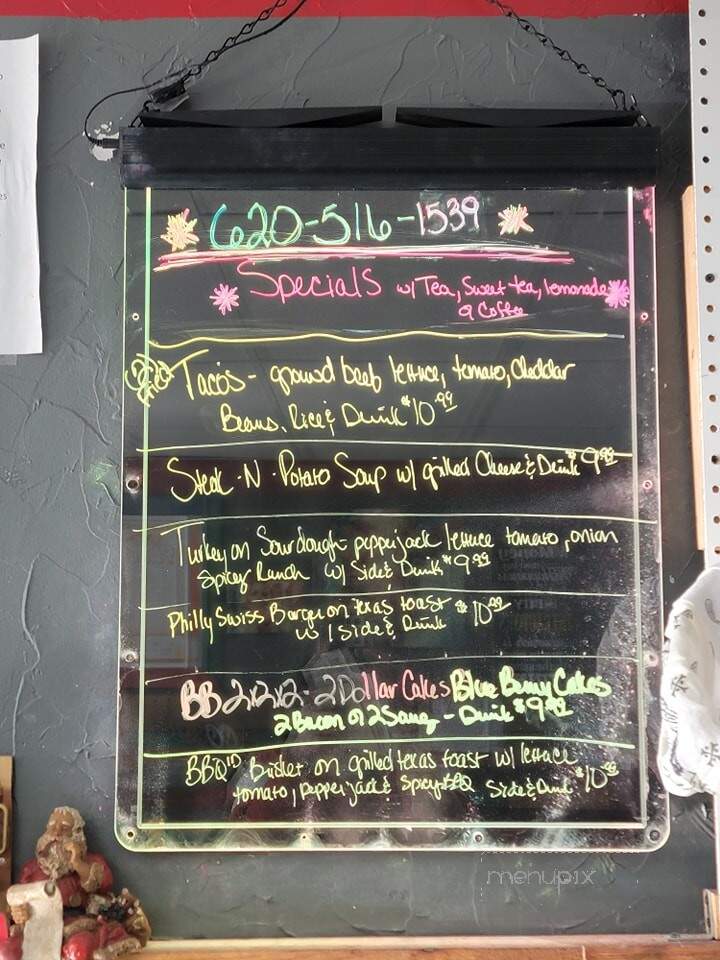 620-516-1539
Specials w/ Tea, Sweet tea, lemonade
or Coffee
Tacos - ground beef lettuce, tomato, Cheddar
Beans, Rice & Drink $10.99
Steak-N-Potato Soup w/ grilled Cheese & Drink $9.99
Turkey on Sourdough - pepperjack lettuce tomato, onion
Spicey Ranch w/ Side & Drink $9.99
Philly Swiss Burger on texas toast $10.99
w/ 1 Side & Drink
BB 2x2x2 - 2 Dollar Cakes Blue Berry Cakes
2 Bacon or 2 Saug - Drink $9.99
BBQ'D Brisket on grilled texas toast w/ lettuce
tomato, Pepperjack & Spicy BBQ Side & Drink $10.99
menupix